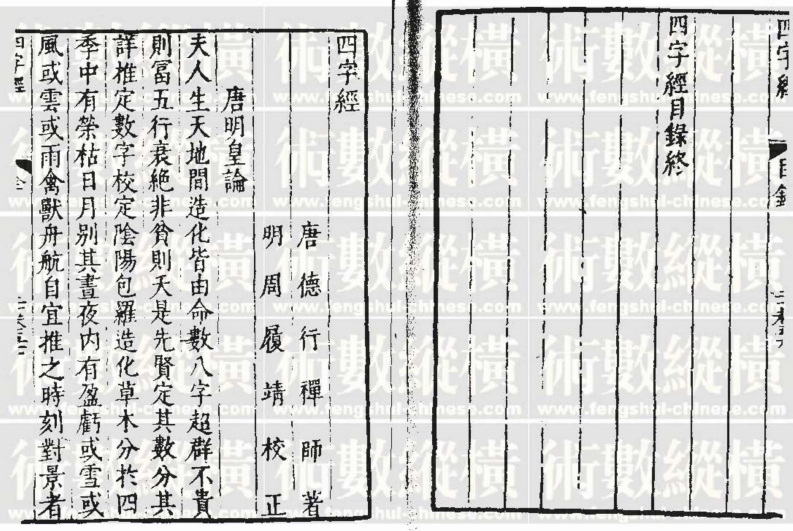 四字經
目錄
四字經目錄終
四字經
唐德行禪師著
明周履靖校正
唐明皇論
夫人生天地間造化皆由命數八字超群不貴
則富五行衰絶非貧則夭是先賢定其數分其
詳推定數字校定陰陽包羅造化草木分於四
季中有榮枯日月別其晝夜内有盈虧或雪或
風或雲或雨禽獸舟航自宜推之時刻對景者
四字經
術數縱橫
www.fengshui-chinese.com